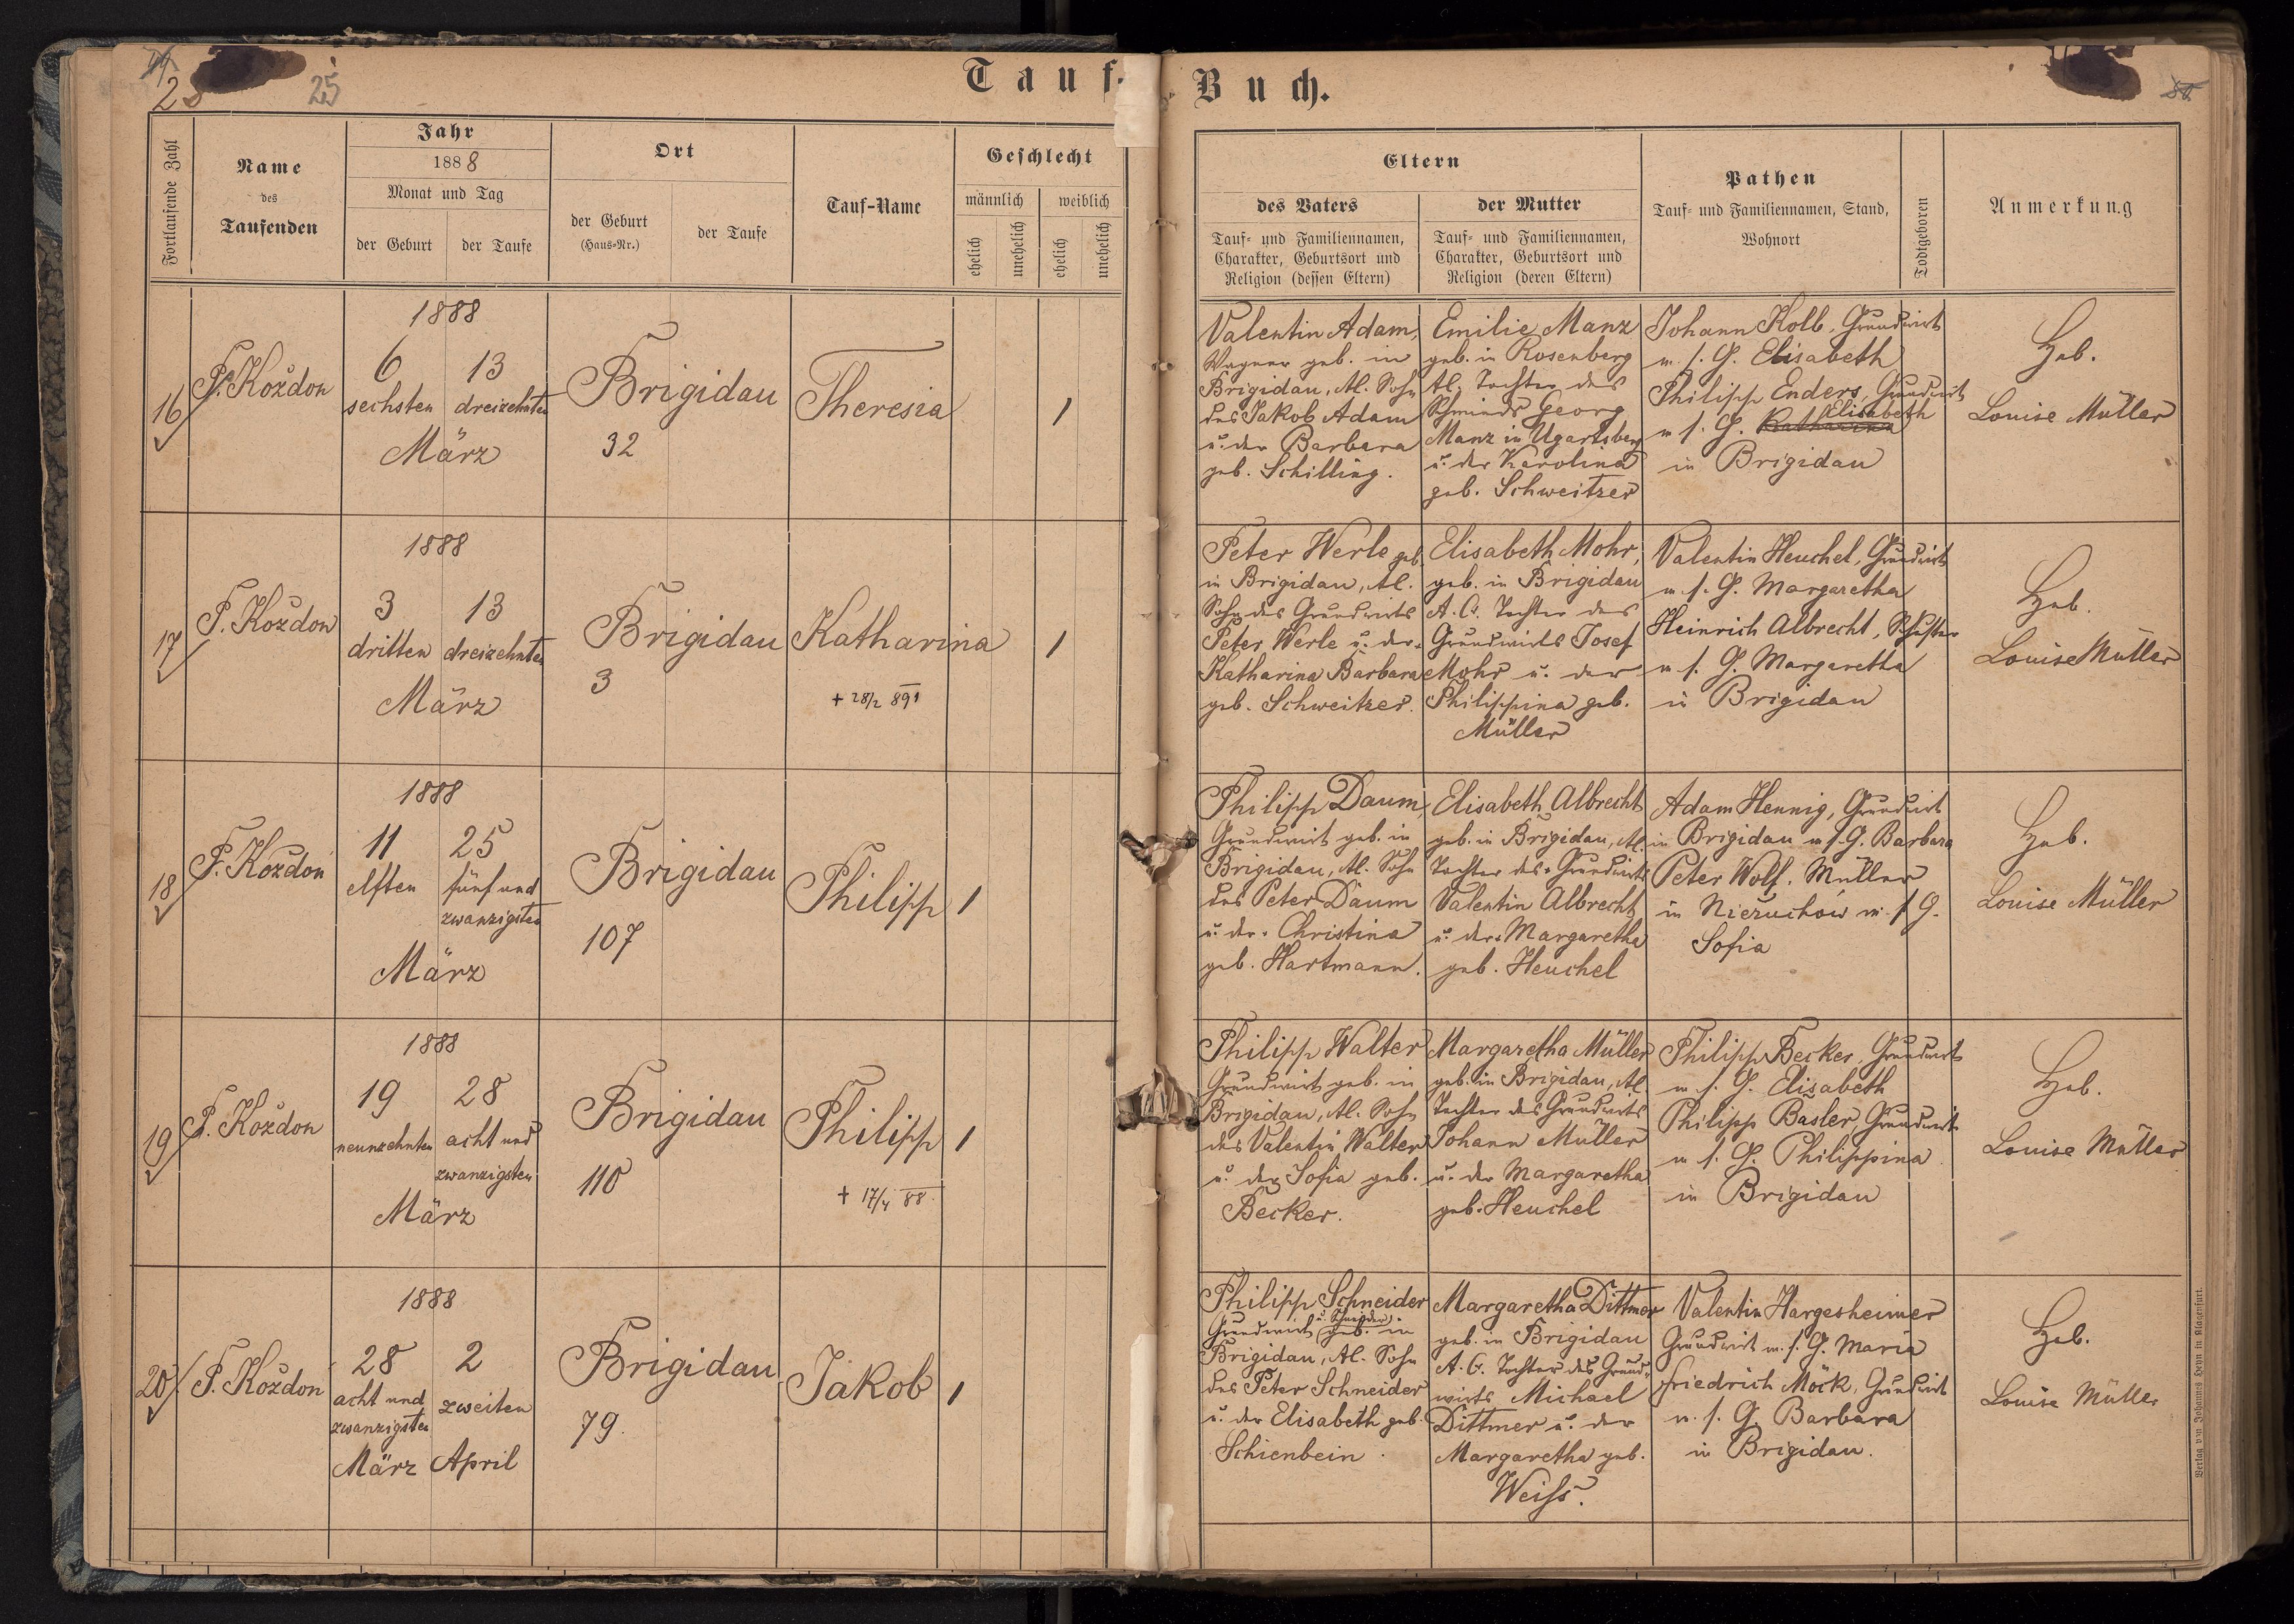 25
Tauf-Buch.
Fortlaufende Zahl
Name
des
Taufenden
Jahr
1888
Monat und Tag
der Geburt
der Taufe
Ort
der Geburt
(Haus-Nr.)
der Taufe
Tauf-Name
Geschlecht
männlich
weiblich
ehelich
unehelich
ehelich
unehelich
Eltern
des Vaters
Tauf- und Familiennamen,
Charakter, Geburtsort und
Religion (dessen Eltern)
der Mutter
Tauf- und Familiennamen,
Charakter, Geburtsort und
Religion (deren Eltern)
Pathen
Tauf- und Familiennamen, Stand,
Wohnort
Todtgeboren
Anmerkung
16
P. Koždon
1888
6
sechsten
13
dreizehnten
März
Brigidau
32
Theresia
1
Valentin Adam,
Wagner geb. in
Brigidau, Al. Sohn
des Jakob Adam
u. der Barbara
geb. Schilling.
Emilie Manz
geb. in Rosenberg
Al. Tochter des
Schmieds Georg
Manz in Ugartsberg
u. der Karolina
geb. Schweitzer
Johann Kolb, Grundwirt
m. s. G. Elisabeth
Philipp Enders, Grundwirt
m. s. G. Katharina Elisabeth
in Brigidau
Heb.
Louise Müller
17
P. Koždon
1888
3
dritten
13
dreizehnten
März
Brigidau
3
Katharina
+ 28/2 891
1
Peter Werle geb.
in Brigidau, Al.
Sohn des Grundwirts
Peter Werle u. der
Katharina Barbara
geb. Schweitzer.
Elisabeth Mohr,
geb. in Brigidau
A. C. Tochter des
Grundwirts Josef
Mohr u. der
Philippina geb.
Müller
Valentin Heuchel, Grundwirt
m. s. G. Margaretha
Heinrich Albrecht, Schuster
m. s. G. Margaretha
in Brigidau
Heb.
Louise Müller
18
P. Koždon
1888
11
elften
25
fünf und
zwanzigsten
März
Brigidau
107
Philipp
1
Philipp Daum,
Grundwirt geb. in
Brigidau, Al. Sohn
des Peter Daum
u. der Christina
geb. Hartmann.
Elisabeth Albrecht
geb. in Brigidau, Al.
Tochter des Grundwirts
Valentin Albrecht
u. der Margaretha
geb. Heuchel
Adam Hennig, Grundwirt
in Brigidau m. s. G. Barbara
Peter Wolf, Müller
in Niezuchów m. s. G.
Sofia
Heb.
Louise Müller
19
P. Koždon
1888
19
neunzehnten
28
acht und
zwanzigsten
März
Brigidau
110
Philipp
+ 17/4 88.
1
Philipp Walter
Grundwirt geb. in
Brigidau, Al. Sohn
des Valentin Walter
u. der Sofia geb.
Becker.
Margaretha Müller
geb. in Brigidau, Al.
Tochter des Grundwirts
Johann Müller
u. der Margaretha
geb. Heuchel
Philipp Becker, Grundwirt
m. s. G. Elisabeth
Philipp Basler, Grundwirt
m. s. G. Philippina
in Brigidau
Heb.
Louise Müller
20
P. Koždon
1888
28
acht und
zwanzigsten
März
2
zweiten
April
Brigidau
79.
Jakob
1
Philipp Schneider
u. Schneider
Grundwirt geb. in
Brigidau, Al. Sohn
des Peter Schneider
u. der Elisabeth geb.
Schienbein.
Margaretha Dittmer
geb. in Brigidau
A. C. Tochter des Grund-
wirts Michael
Dittmer u. der
Margaretha geb.
Weiss.
Valentin Hargesheimer
Grundwirt m. s. G. Maria
Friedrich Möck, Grundwirt
m. s. G. Barbara
in Brigidau.
Heb.
Louise Müller
Verlag von Johannes Heyn in Klagenfurt.